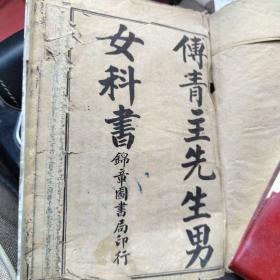 傅青主先生男
女科書
錦章圖書局印行